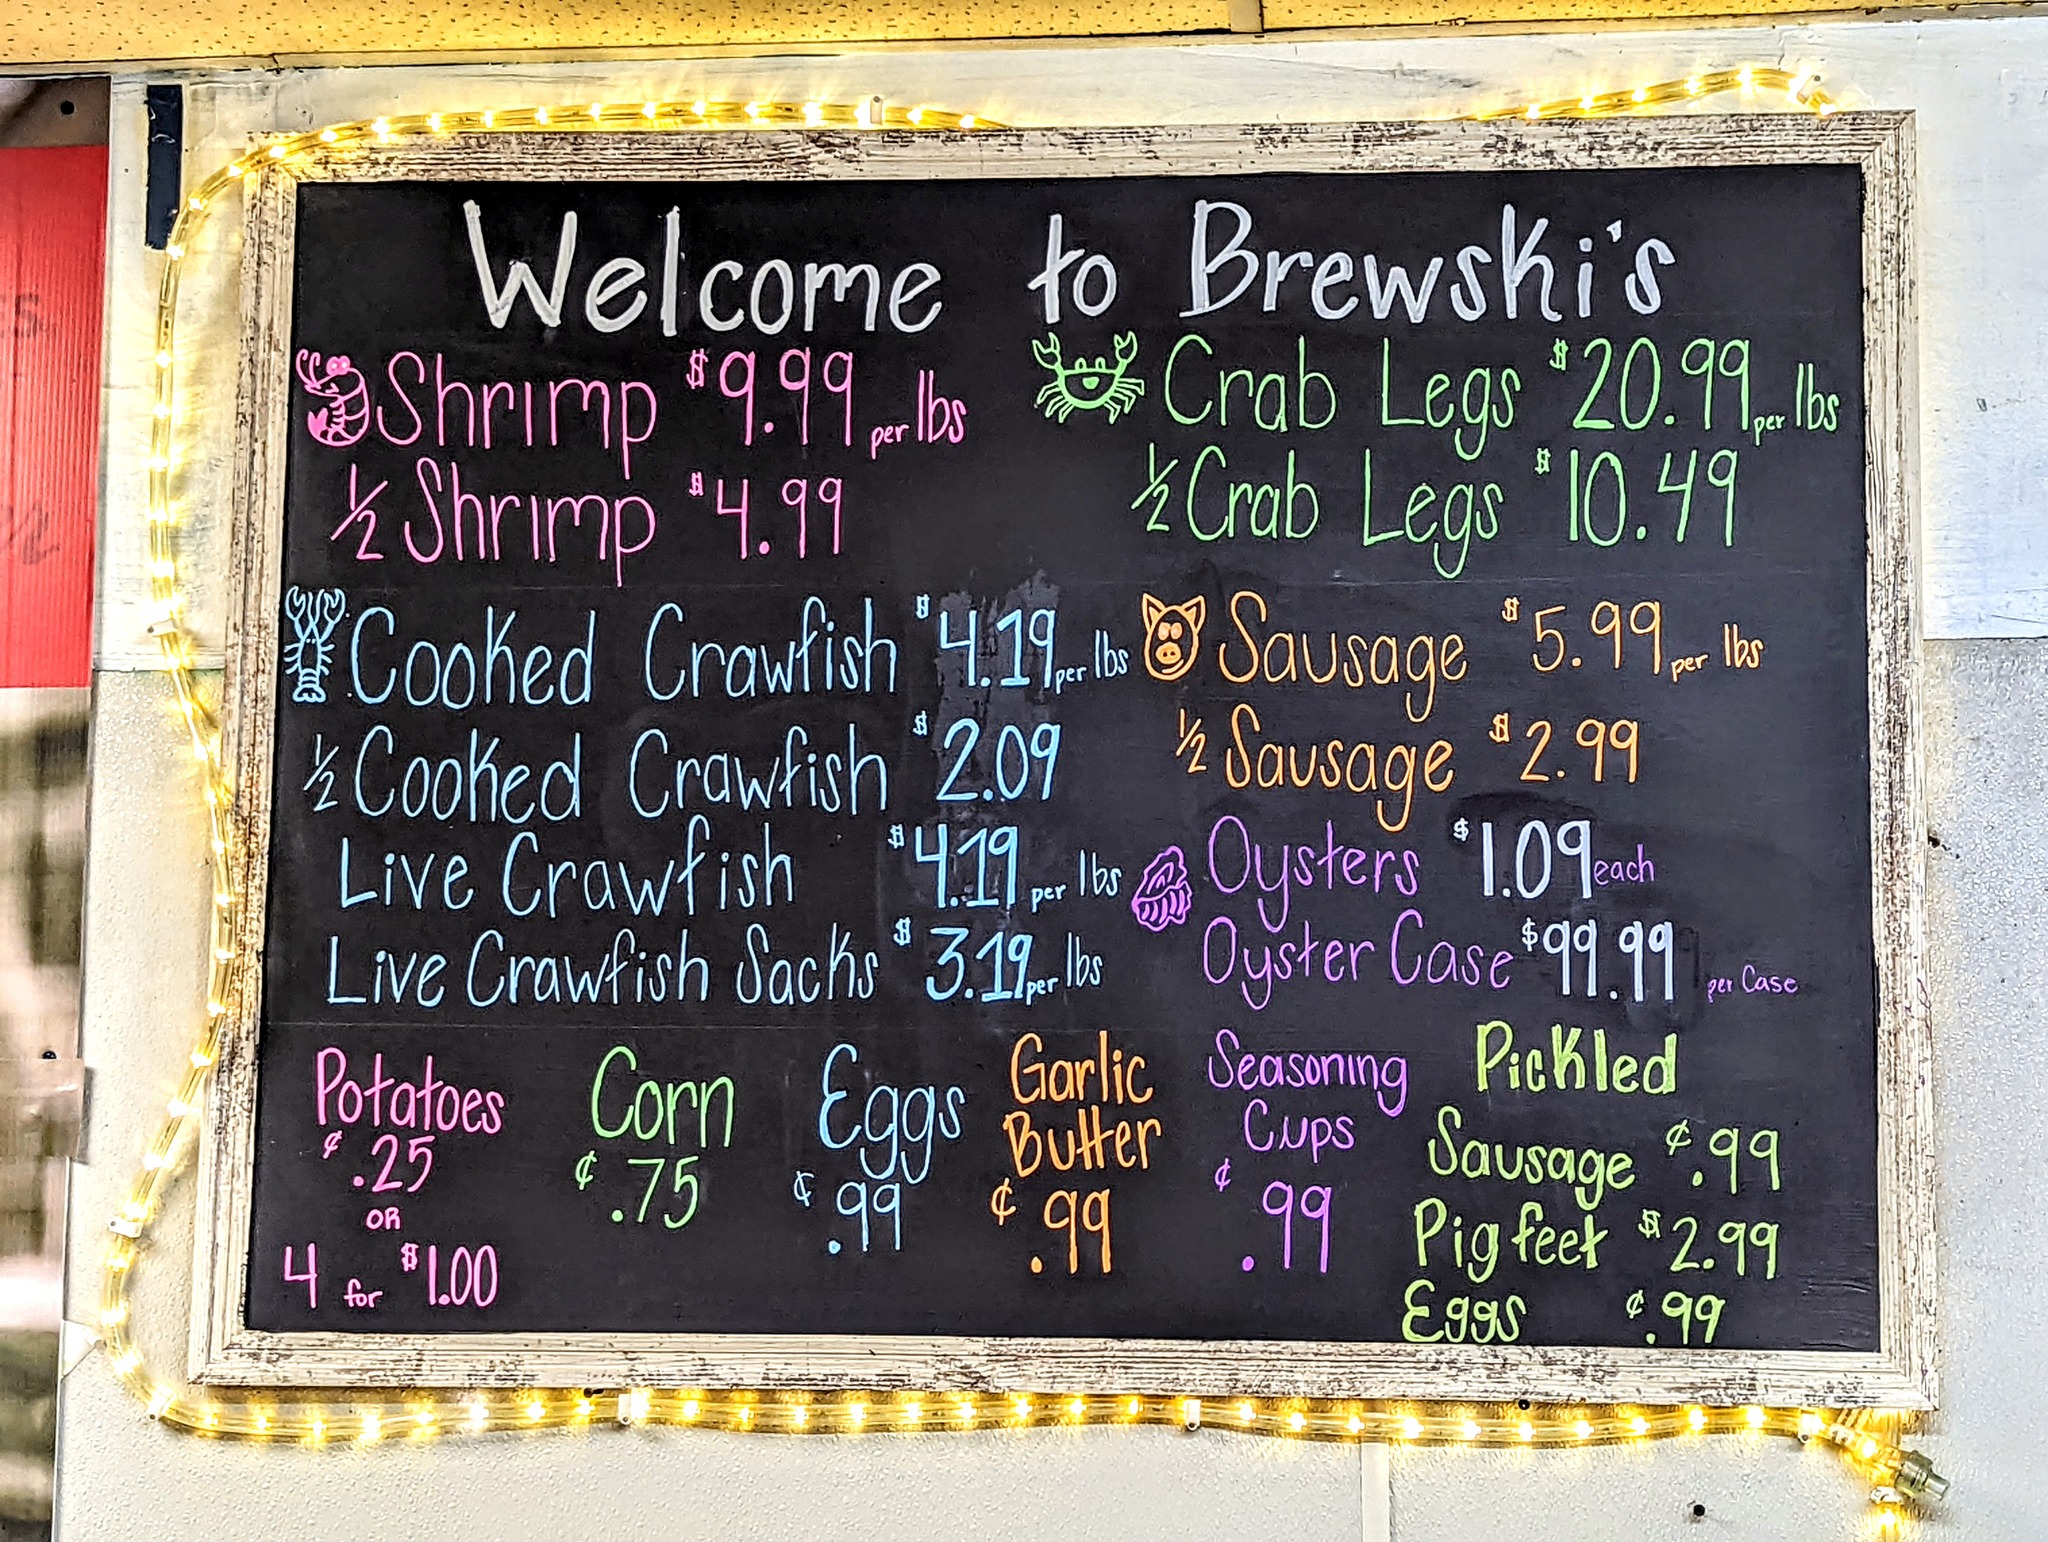 Welcome to Brewski's
Shrimp $9.99 per lbs
½ Shrimp $4.99
Crab Legs $20.99 per lbs
½ Crab Legs $10.49
Cooked Crawfish $4.19 per lbs
½ Cooked Crawfish $2.09
Live Crawfish $4.19 per lbs
Live Crawfish Sacks $3.19 per lbs
Sausage $5.99 per lbs
½ Sausage $2.99
Oysters $1.09 each
Oyster Case $99.99 per Case
Potatoes
¢.25
OR
4 for $1.00
Corn
¢.75
Eggs
¢.99
Garlic
Butter
¢.99
Seasoning
Cups
¢.99
Pickled
Sausage ¢.99
Pig feet $2.99
Eggs ¢.99